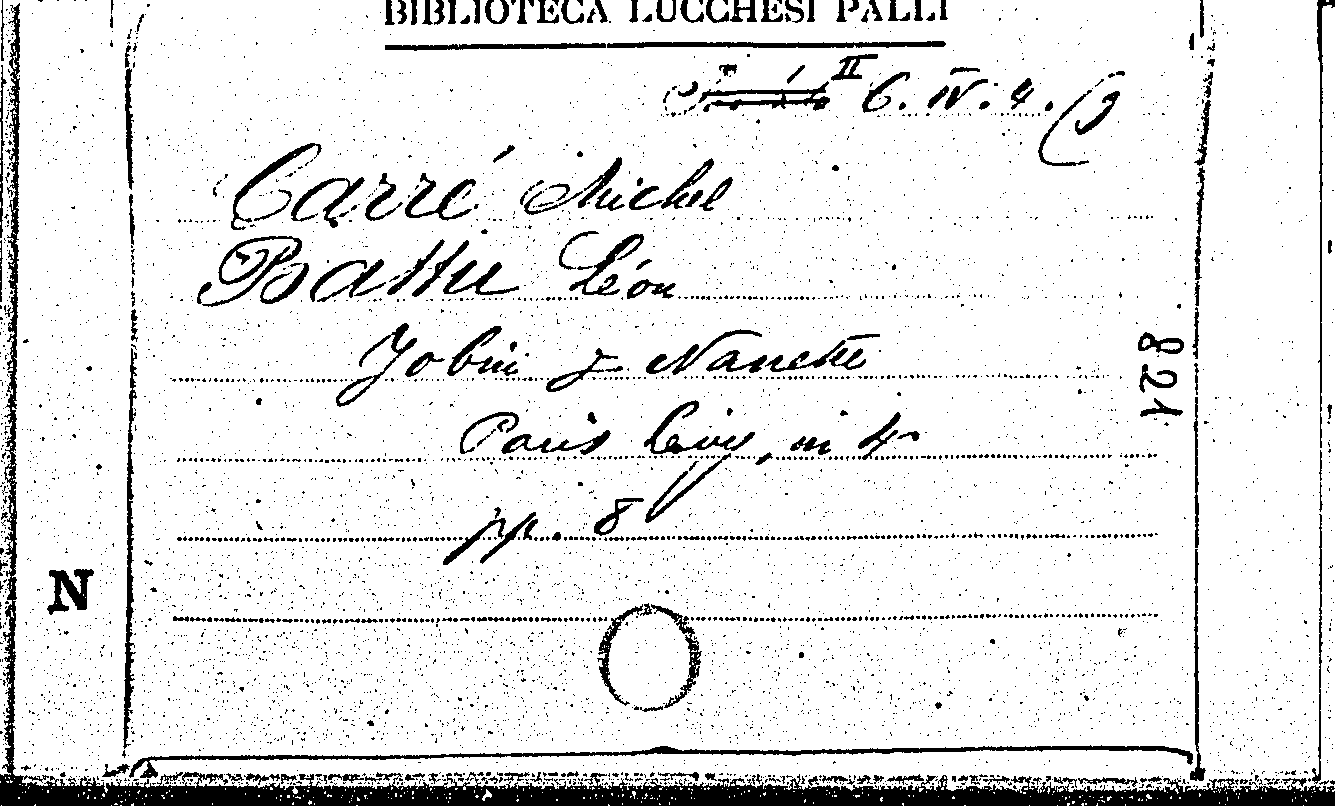 BIBLIOTECA LUCCHESI PALLI
II 6. IV. 4. (9
Carré Michel
Battu Léon
Jobin & Nanette
Paris Levy, in 4º
pp. 8
821
N